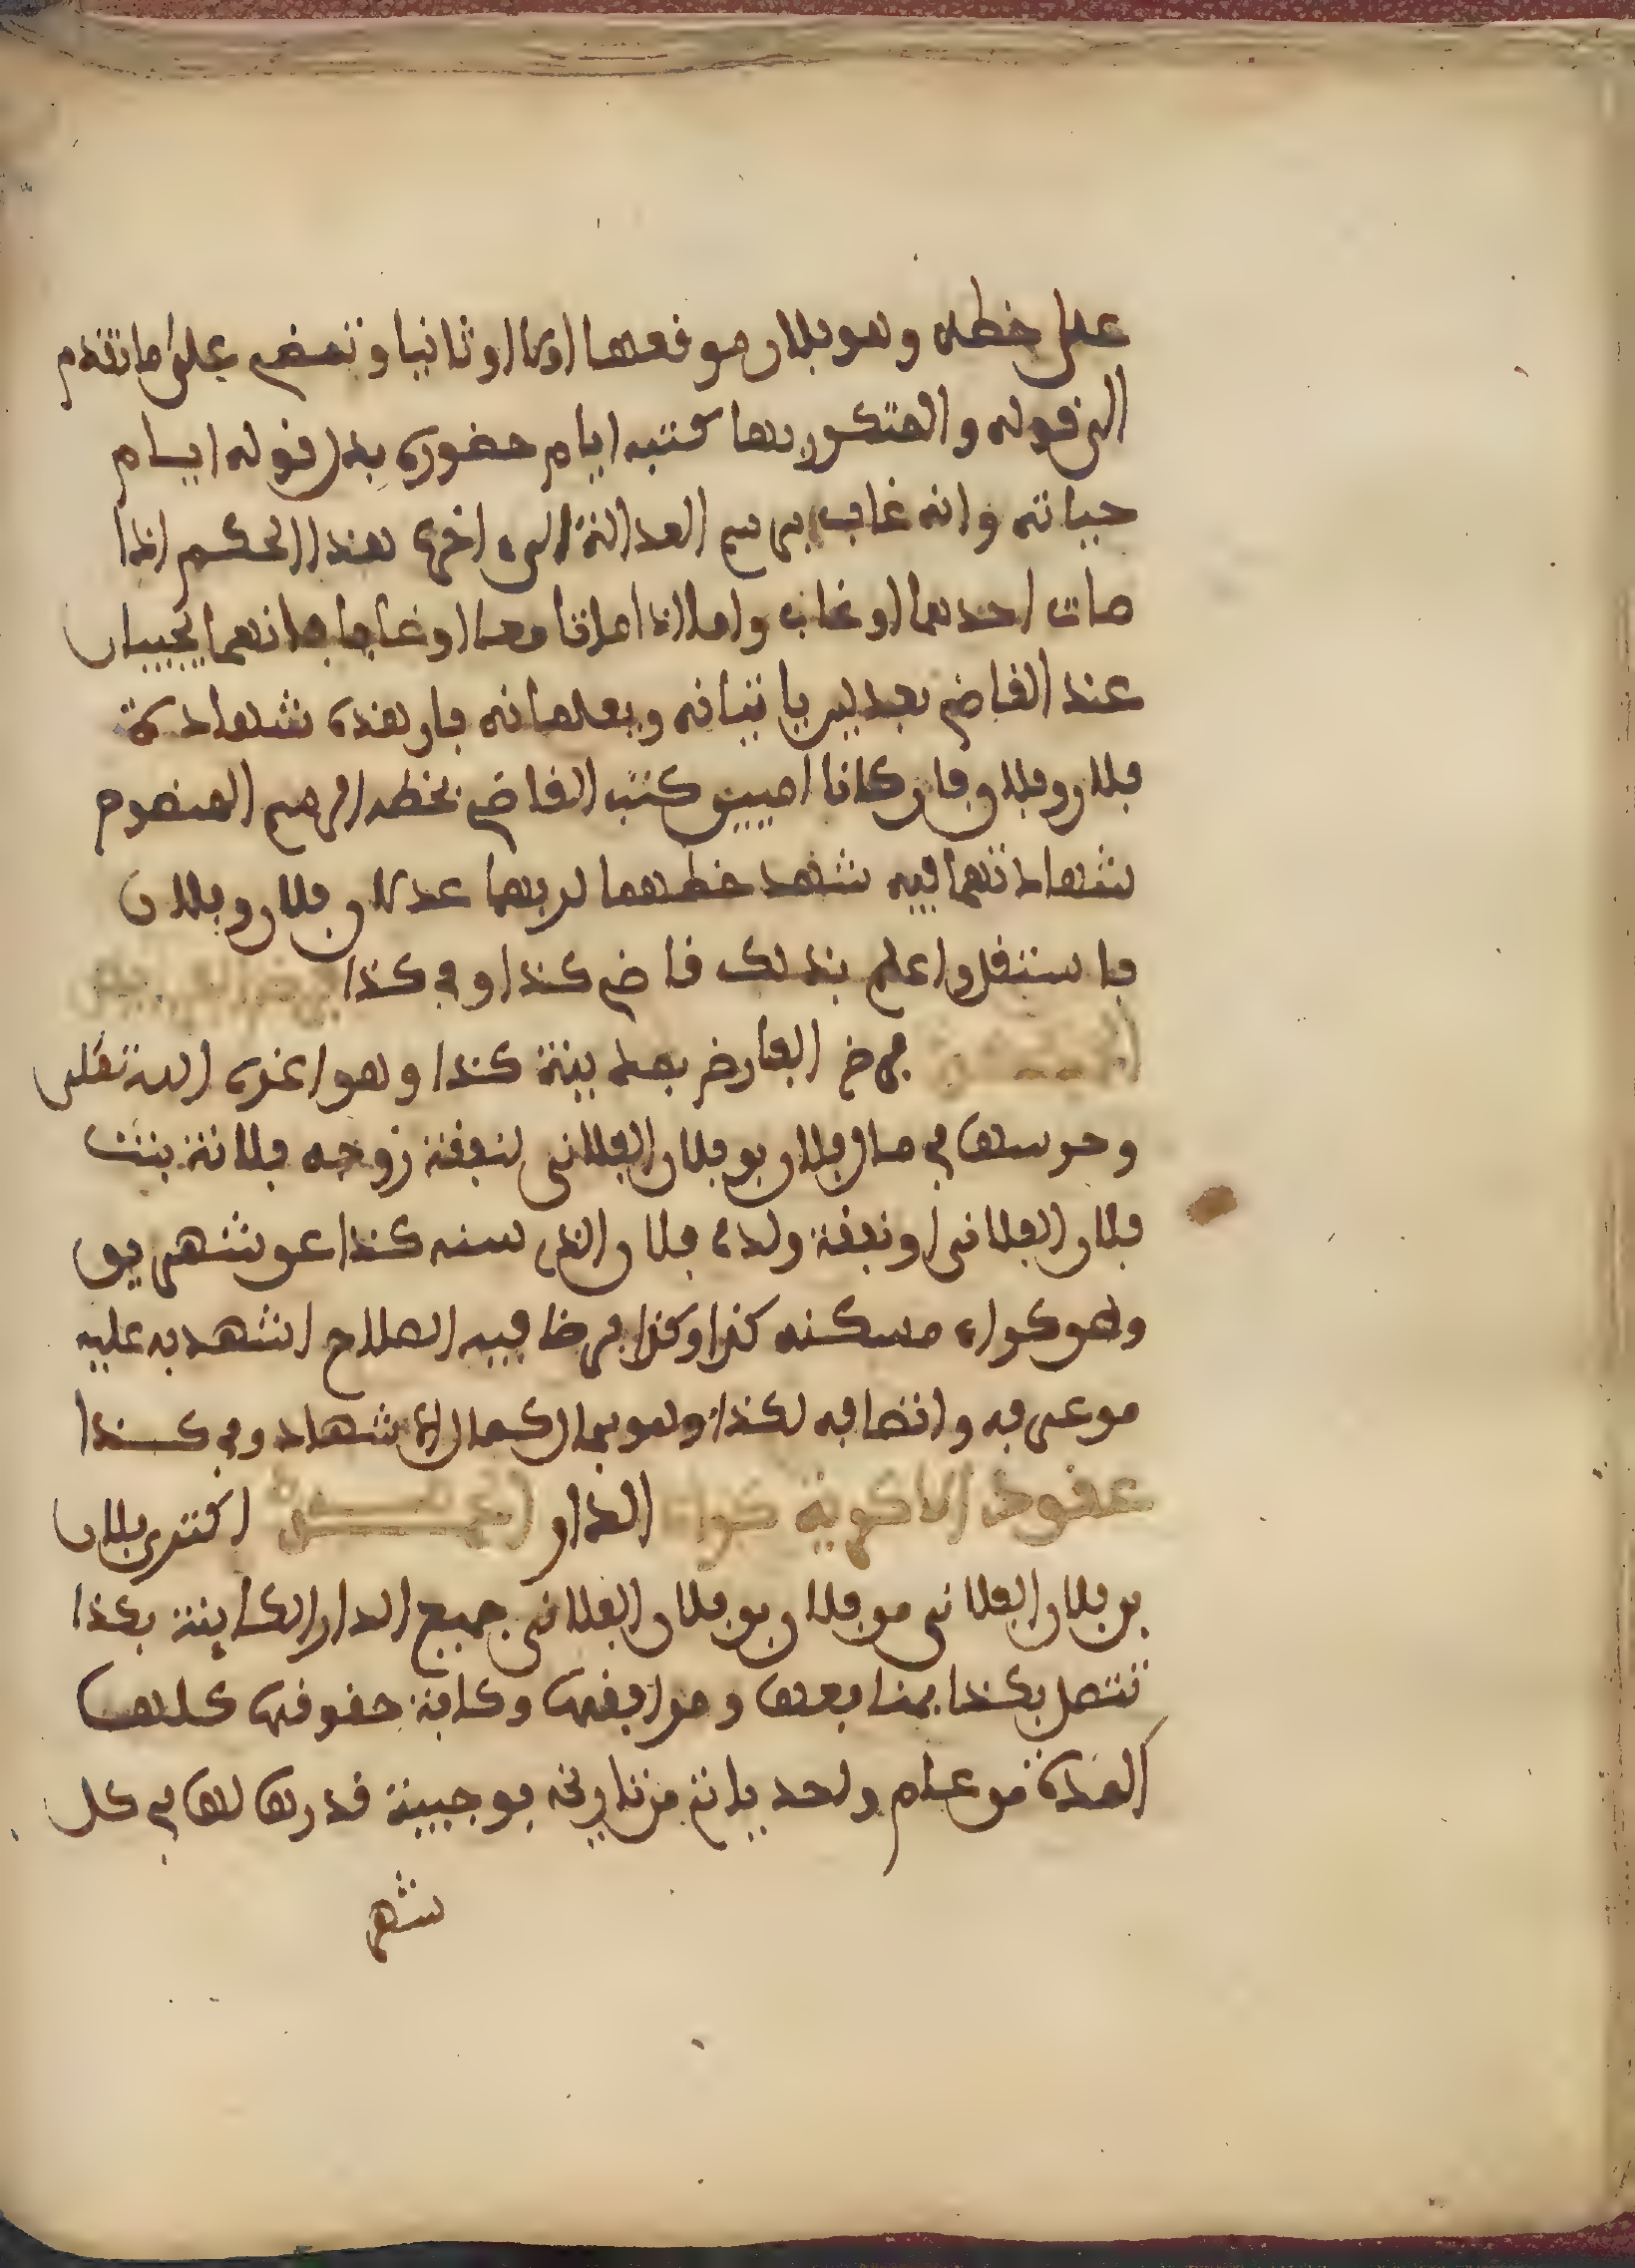 على خطه وهو فلان موقعها اولا او ثانيا وتمضي على ما تقدم
الى قوله والمذكور بها كتبه ايام حضوره بدل قوله ايام
حياته وانه غاب برسم العدالة الى اخره هذا الحكم اذا
مات احدهما او غاب واما اذا ماتا معا او غابا فانهما يحييان
عند القاضي بعدلين ياتيانه ويعلمانه بان هذه شهادة
فلان وفلان فان كانا اميين كتب القاضي بخطه الرسم المنصوص
شهادتهما فيه شهد خطهما لربهما عدلان فلان وفلان
فاستقلوا علم بذلك قاضي كذا وفي كذا فرض الفرض
فرض الفارض بعد بينة كذا وهو اعزه الله تعلى
وحرسها في مال فلان بن فلان الفلاني لنفقة زوجه فلانة بنت
فلان الفلاني او نفقة ولده فلان الذي سنه كذا عن شهرين
وهو كراء مسكنه كذا وكذا فرضا فيه الصلاح اشهد به عليه
من عرفه وانصافه لكذا وهو بحال كمال الاشهاد وفي كذا
عقود الاكرية كراء الدار اكترى فلان
بن فلان الفلاني من فلان بن فلان الفلاني جميع الدار الكاينة بكذا
تتصل بكذا بمنافعها ومرافقها وكافة حقوقها كلها
لمدة من عام واحد ياتي من تاريخه بوجيبة قدرها لها في كل
شهر